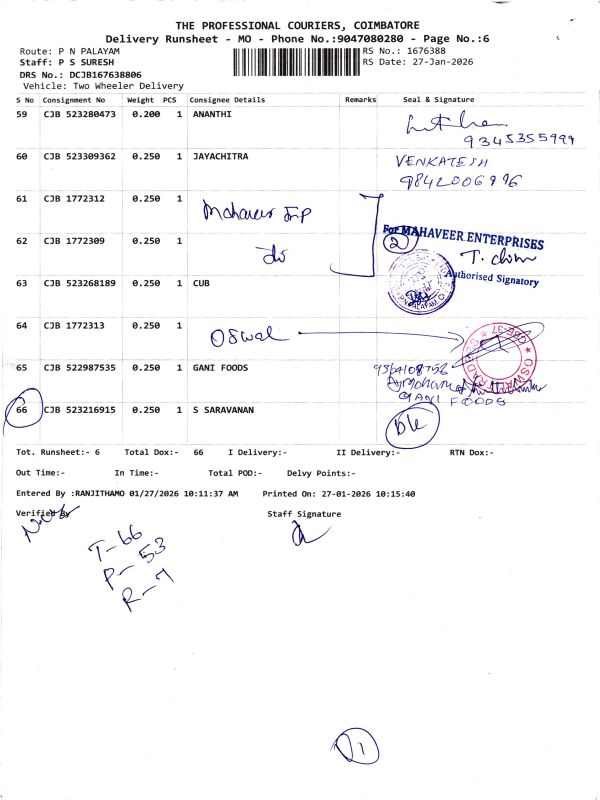 THE PROFESSIONAL COURIERS, COIMBATORE
Delivery Runsheet - MO - Phone No.:9047080280 - Page No.:6
Route: P N PALAYAM RS No.: 1676388
Staff: P S SURESH RS Date: 27-Jan-2026
DRS No.: DCJB167638806
Vehicle: Two Wheeler Delivery
S No Consignment No Weight PCS Consignee Details Remarks Seal & Signature
59 CJB 523280473 0.200 1 ANANTHI
9345355999
60 CJB 523309362 0.250 1 JAYACHITRA VENKATESH
9842006996
61 CJB 1772312 0.250 1 Mahaveer
62 CJB 1772309 0.250 1 do
For MAHAVEER ENTERPRISES
2
Authorised Signatory
63 CJB 523268189 0.250 1 CUB
64 CJB 1772313 0.250 1 Oswal
65 CJB 522987535 0.250 1 GANI FOODS
GANI FOODS
66 CJB 523216915 0.250 1 S SARAVANAN
Tot. Runsheet:- 6 Total Dox:- 66 I Delivery:- II Delivery:- RTN Dox:-
Out Time:- In Time:- Total POD:- Delvy Points:-
Entered By :RANJITHAMO 01/27/2026 10:11:37 AM Printed On: 27-01-2026 10:15:40
Verified By Staff Signature
T-66
P-53
R-7
1